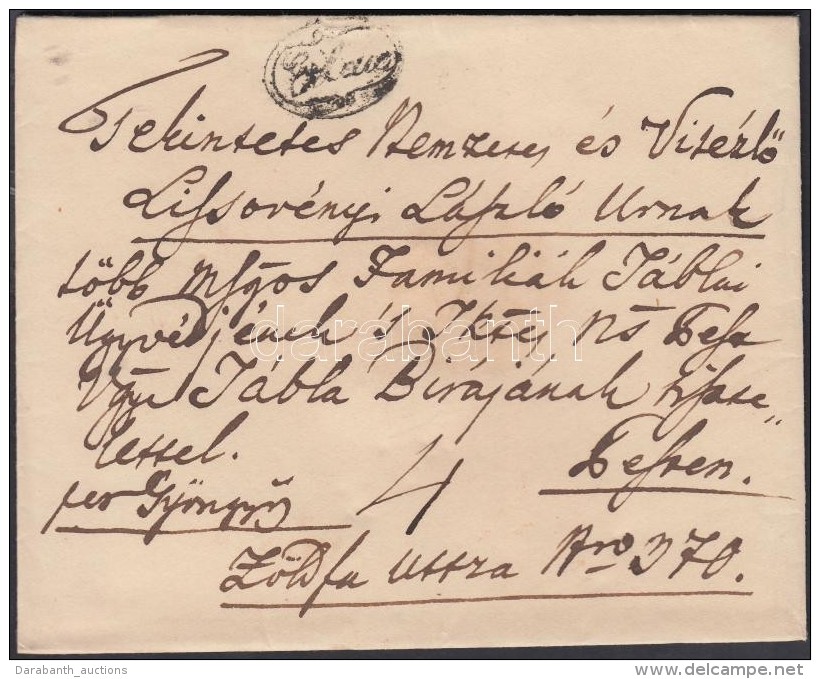 Tekintetes Nemzetes és Vitézlő
Lissovényi László Urnak
több Mgos Familiák Táblai
Ügyvédjének 's Tktes Ns Pest
Vgye Tábla Birájának tisztelettel.
Pesten.
per Gyöngyös
4
Zöldfa Uttza Nro 370.
darabanth
Darabanth_auctions
www.delcampe.net